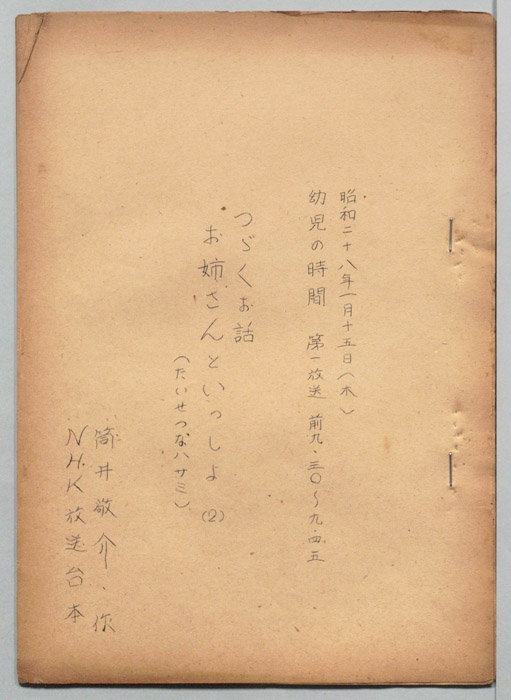 昭和二十八年一月十五日(木)
幼児の時間 第一放送 前九・三〇~九・四五
つゞくお話
お姉さんといっしょ (2)
(たいせつなハサミ)
筒井敬介・作
NHK放送台本